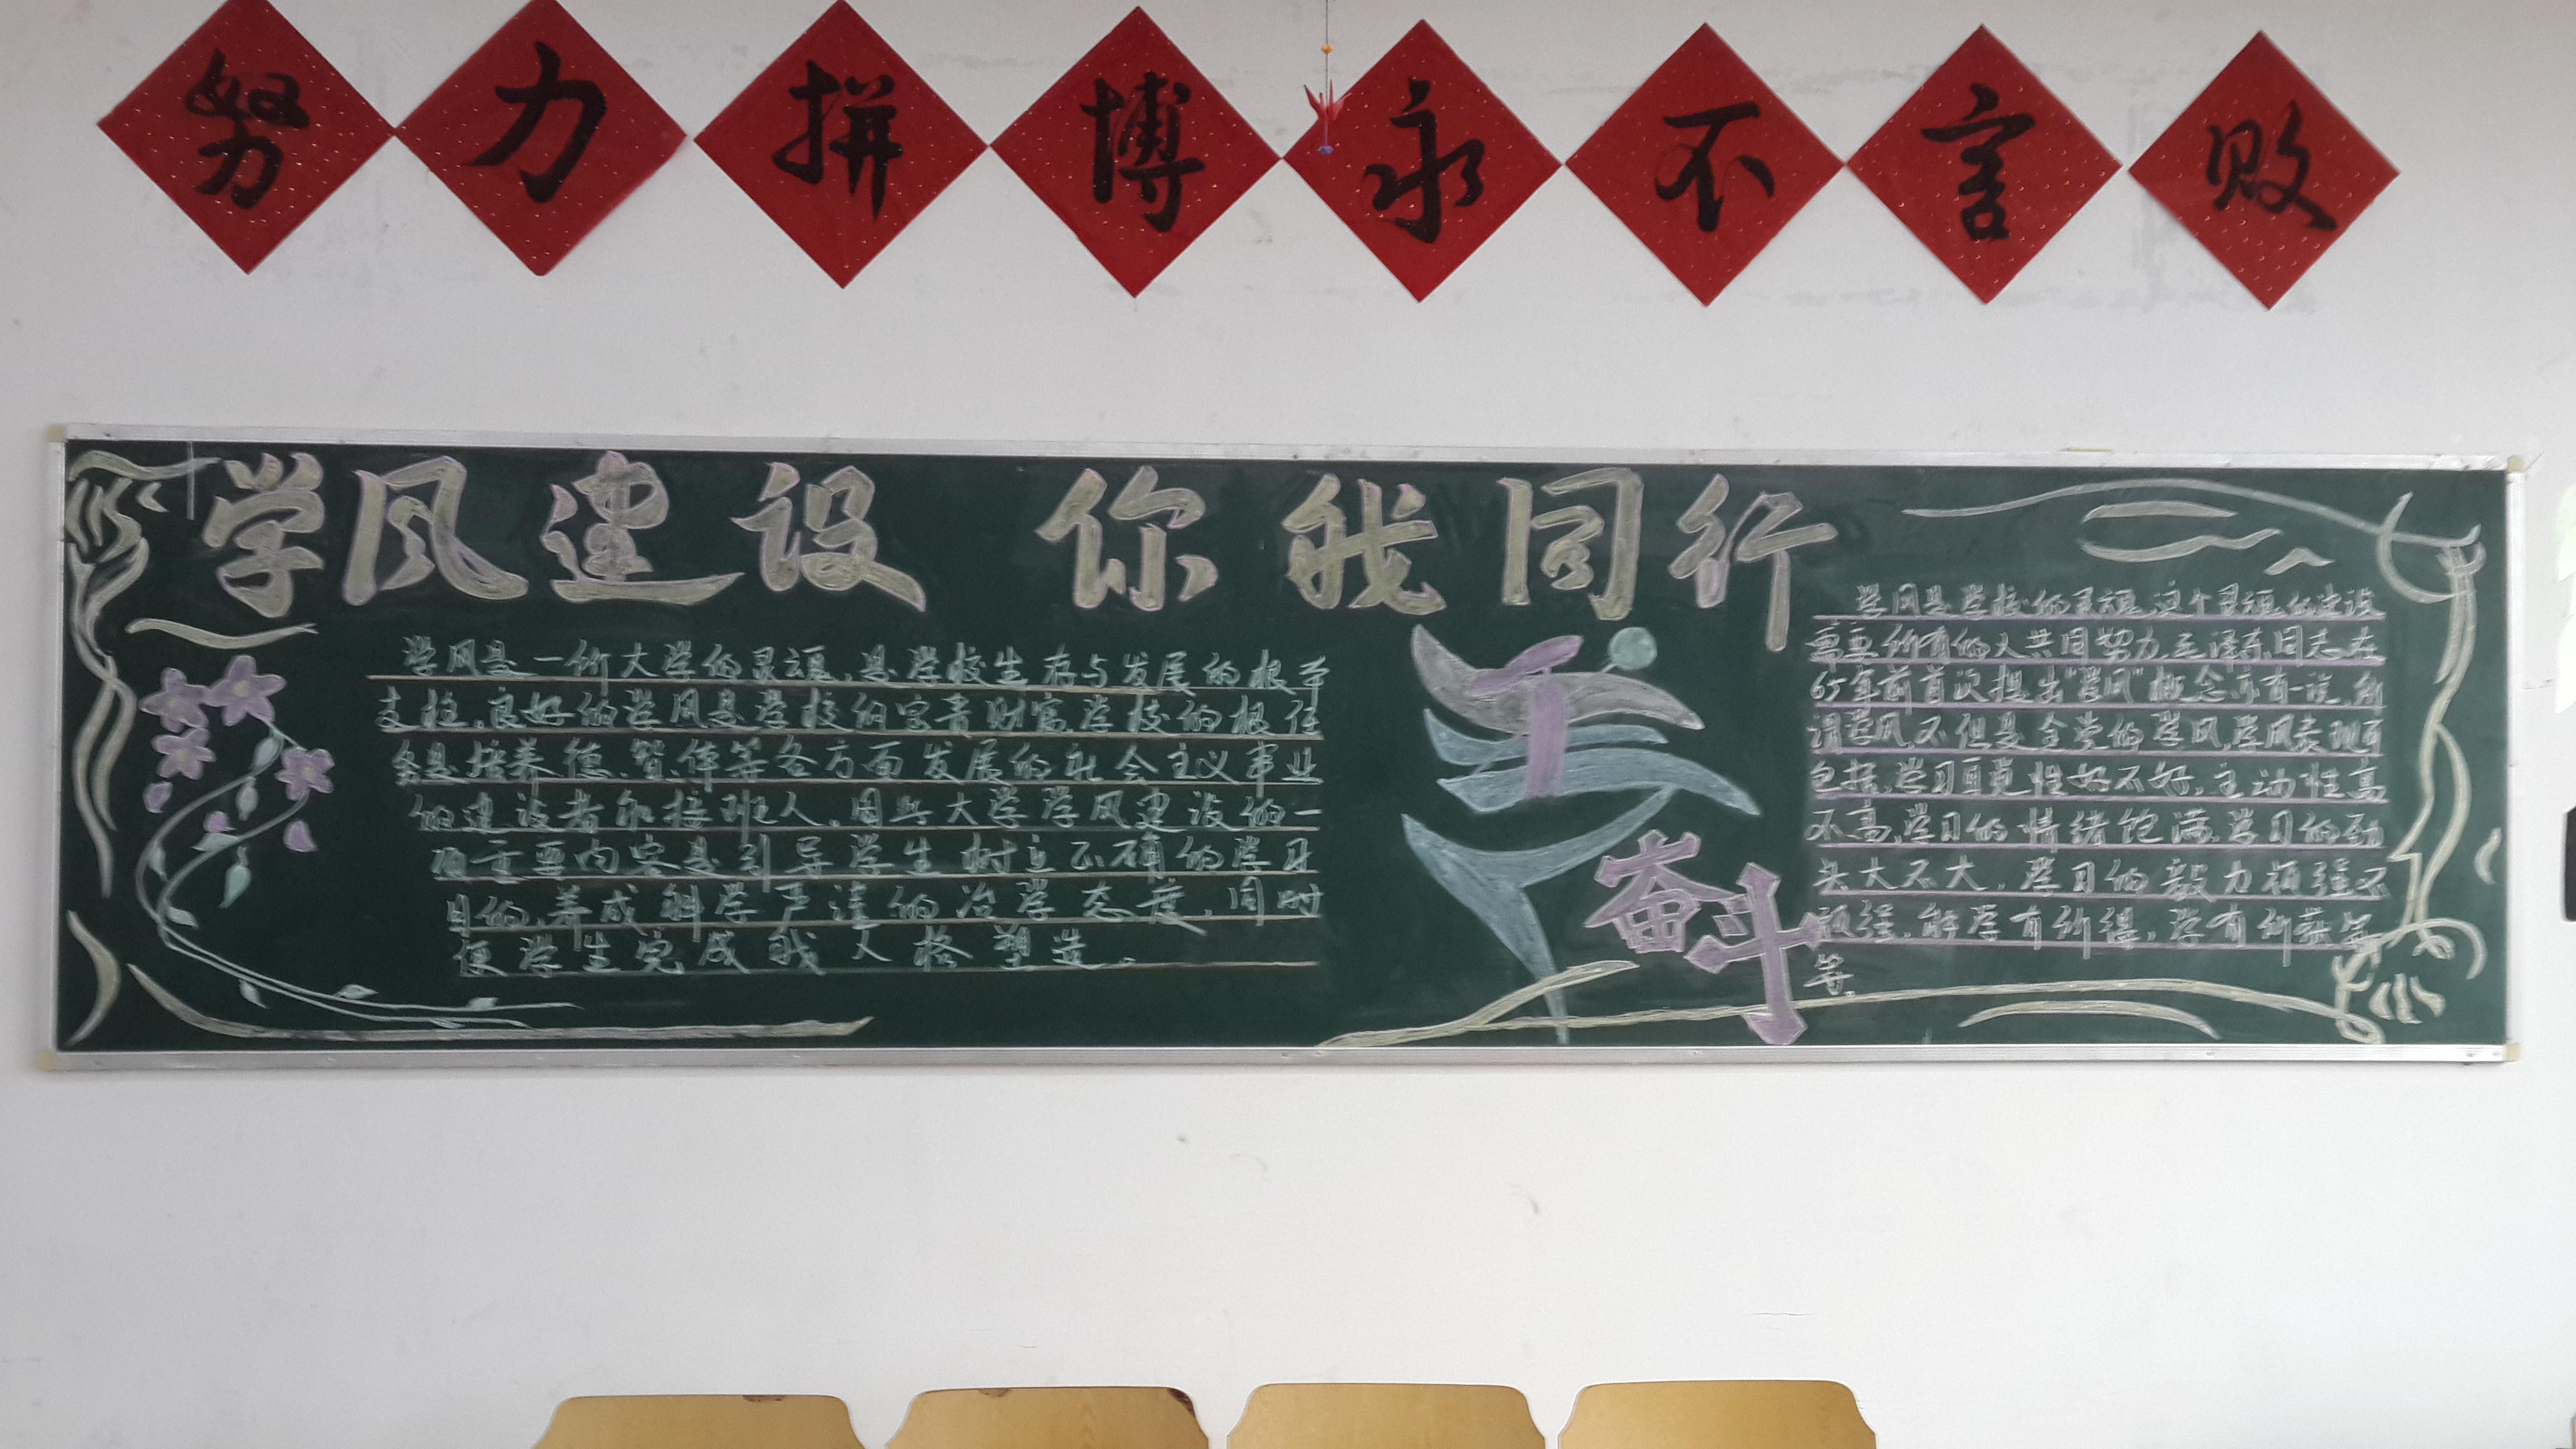 努力拼博永不言败
学风建设 你我同行
学风是一所大学的灵魂,是学校生存与发展的根本
支柱,良好的学风是学校的宝贵财富,学校的根任
务是培养德、智、体等各方面发展的社会主义事业
的建设者和接班人,因此大学学风建设的一
项主要内容是引导学生树立正确的学习
目的,养成科学严谨的治学态度,同时
便学生完成我人格塑造。
奋斗
学风是学校的灵魂,这个灵魂的建设
需要所有的人共同努力,毛泽东同志在
65年前首次提出"学风"概念亦有一说,所
谓学风,不但是全党的学风,学风表现有
包括,学习自觉性好不好,主动性高
不高,学习的情绪饱满,学习的劲
头大不大,学习的毅力顽强不
顽强,能学有所得,学有所获等
等。